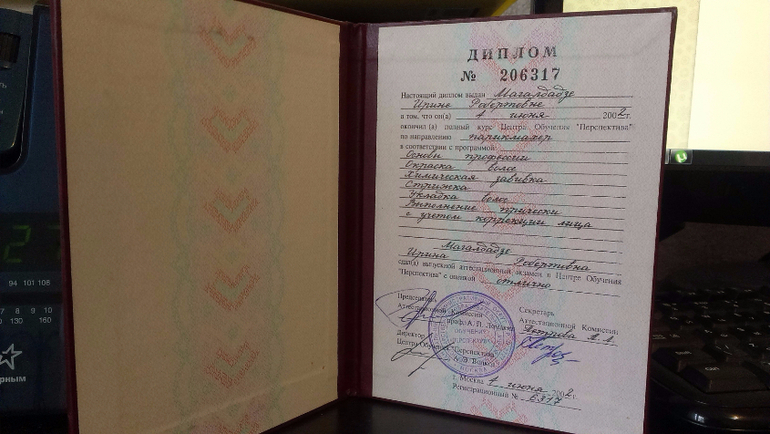 ДИПЛОМ
№ 206317
Настоящий диплом выдан Магалдадзе
Ирине Робертовне
в том, что он(а) 1 июня 2002 г.
окончил(а) полный курс Центра Обучения "Перспектива"
по направлению парикмахер
в соответствии с программой:
Основы профессии
Окраска волос
Химическая завивка
Стрижка
Укладка волос
Выполнение причёски
с учетом коррекции лица
Магалдадзе
Ирина Робертовна
сдал(а) выпускной аттестационный экзамен в Центре Обучения
"Перспектива" с оценкой отлично
Председатель
Аттестационной Комиссии
проф. А. П.
Директор
Центра Обучения "Перспектива"
Секретарь
Аттестационной Комиссии
Петрова А. А.
г. Москва 1 июня 2002
Регистрационный № 6317
94 101 108
7 8 9 10
130 160
рным
27